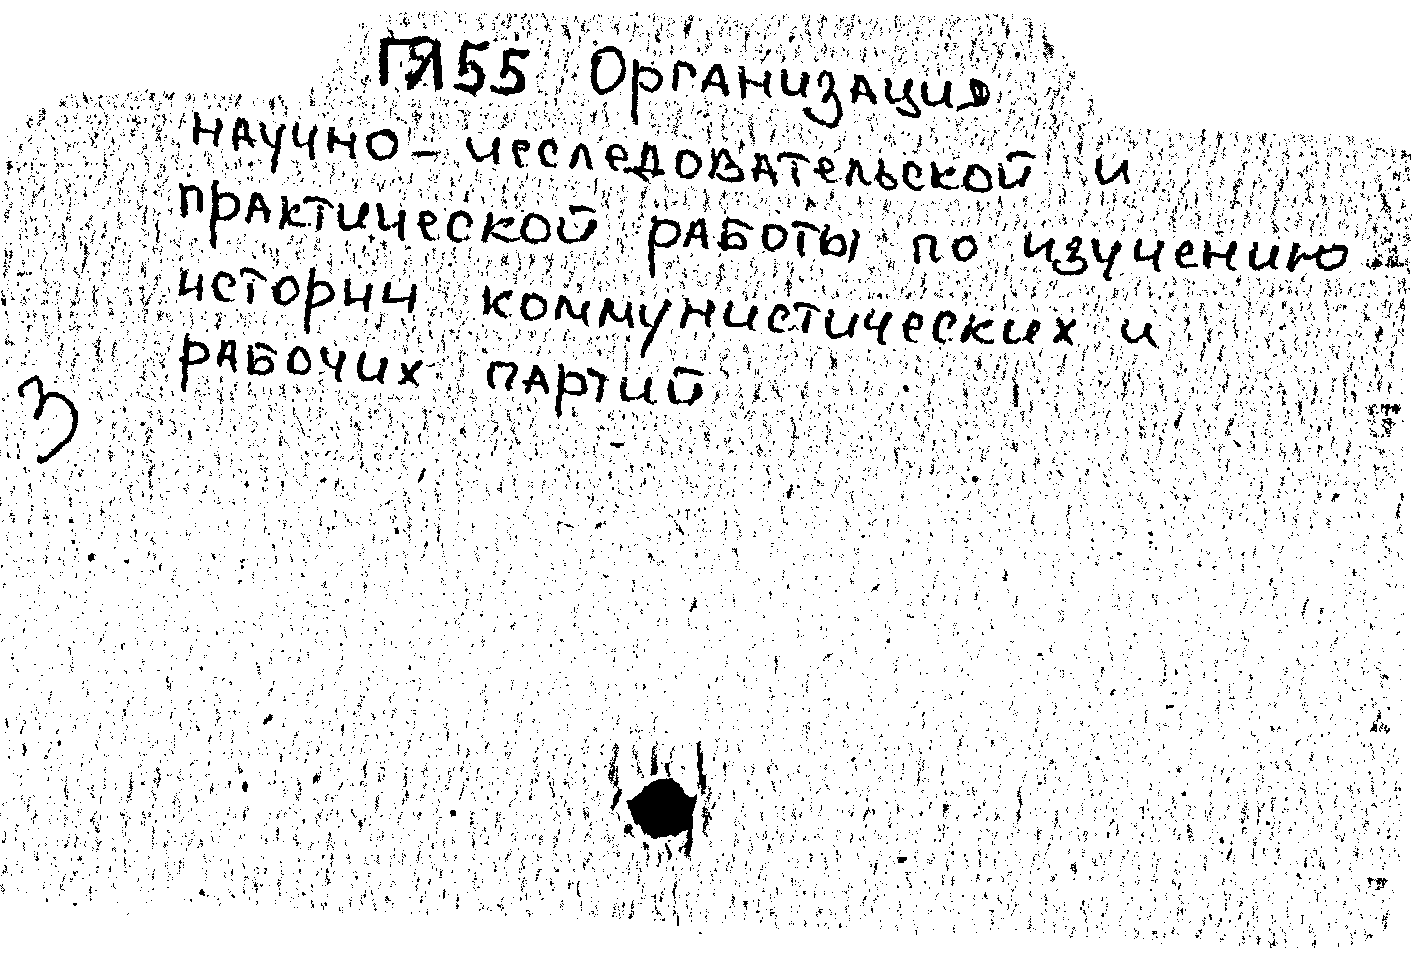 ГЯ55 Организация
научно-исследовательской и
практической работы по изучению
истории коммунистических и
рабочих партий
3